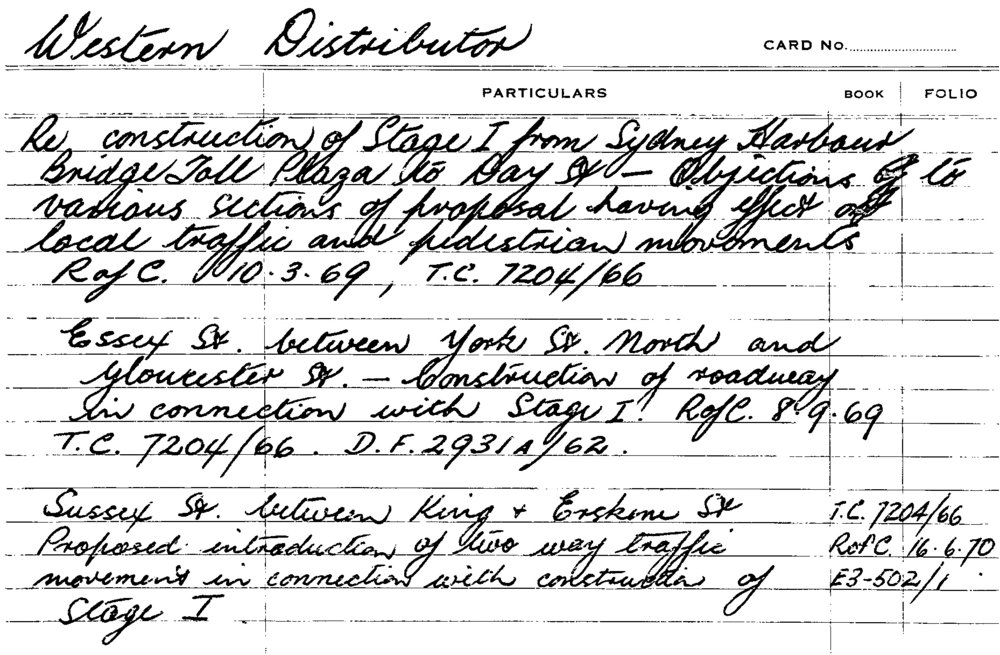 Western Distributor
CARD No.
PARTICULARS BOOK FOLIO
Re construction of Stage I from Sydney Harbour
Bridge Toll Plaza to Day St — Objections to
various sections of proposal having effect on
local traffic and pedestrian movements
R of C. 10.3.69, T.C. 7204/66
Essex St. between York St. North and
Gloucester St. — Construction of roadway
in connection with Stage I. R of C. 8.9.69
T.C. 7204/66. D.F. 2931A/62.
Sussex St. between King + Erskine St T.C. 7204/66
Proposed introduction of two way traffic R of C. 16.6.70
movement in connection with construction of E3-502/1.
Stage I